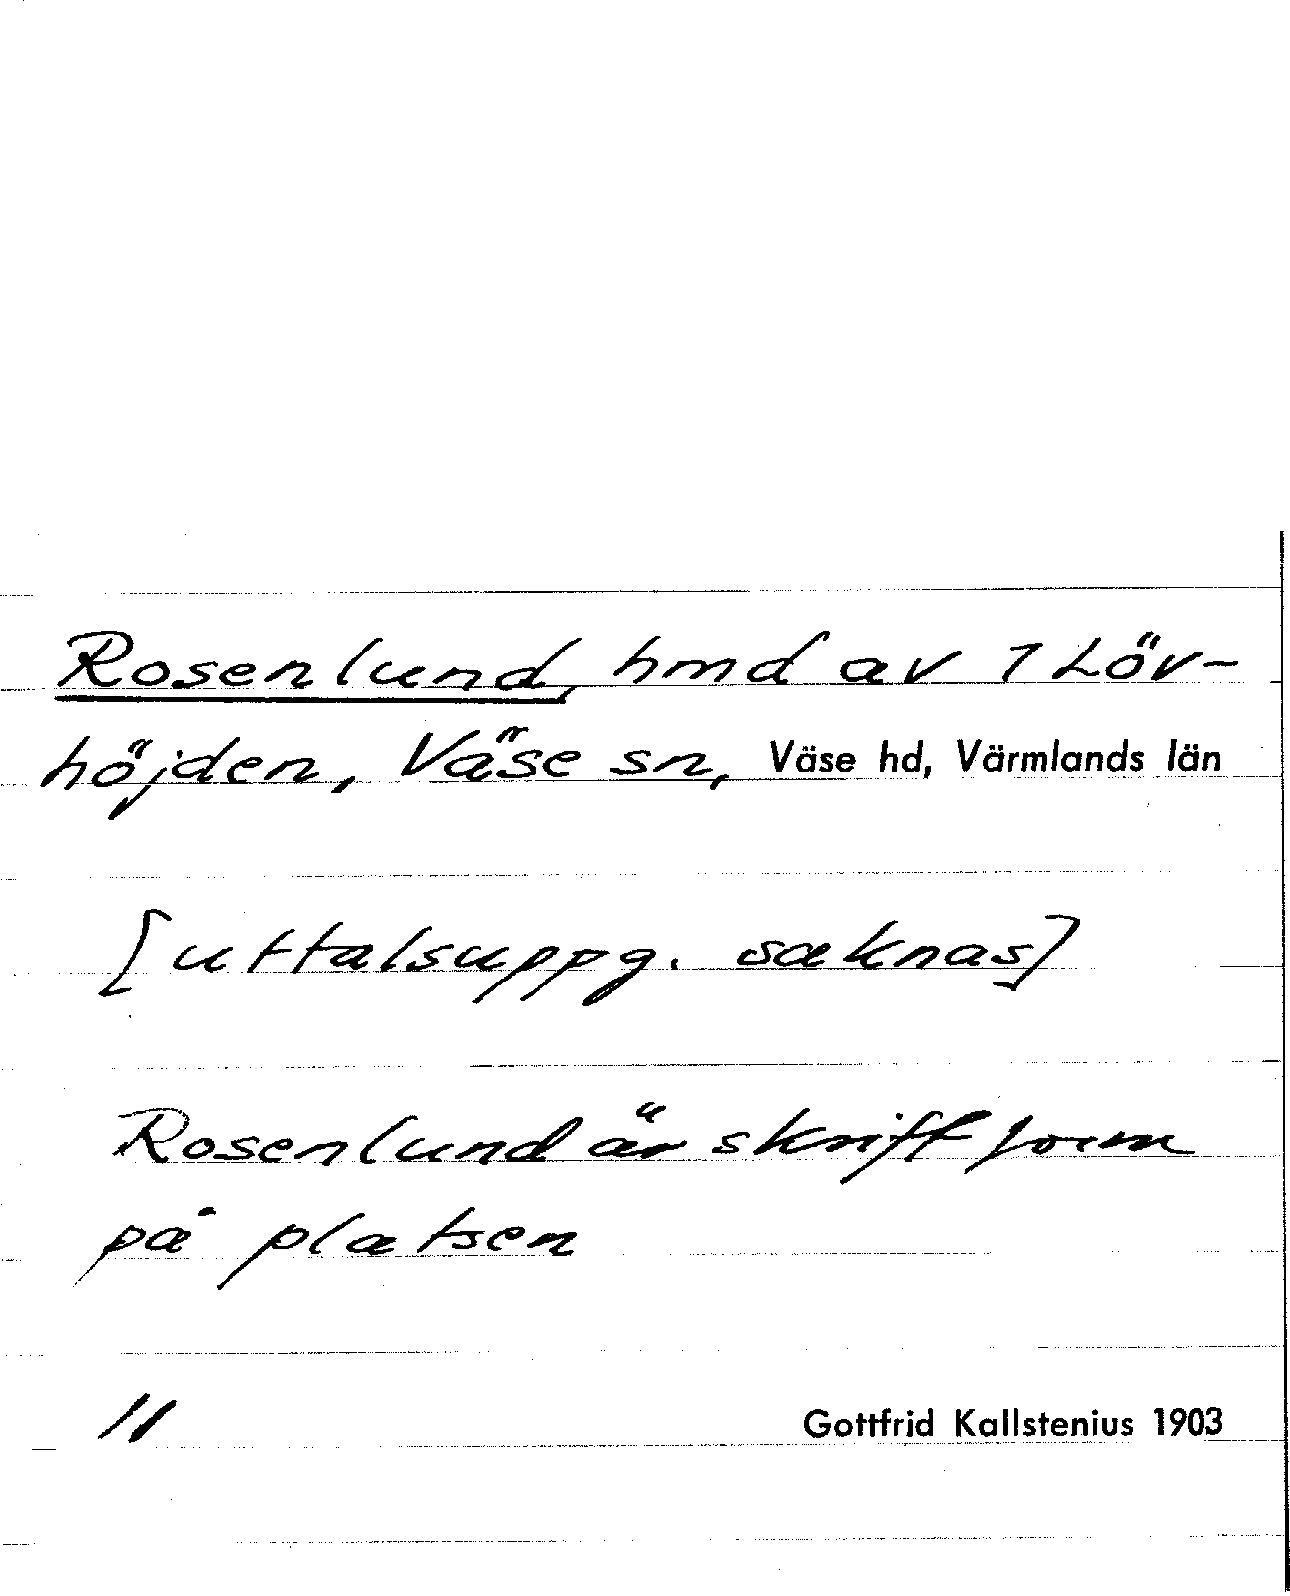 Rosenlund, hmd av 1 Löv-
höjden, Väse sn, Väse hd, Värmlands län
[uttalsuppg. saknas]
Rosenlund är skriftform
på platsen
11 Gottfrid Kallstenius 1903